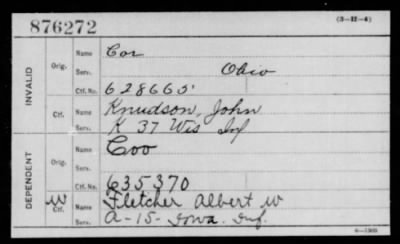 876272
(3-12-4)
INVALID
Orig. Name Cor
Serv. Ohio
Ctf. No. 628665
Ctf. Name Knudson, John
Serv. K 37 Wis Inf
DEPENDENT
Orig. Name Coo
Serv.
Ctf. No. 635370
W Ctf. Name Fletcher Albert W
Serv. A-15-Iowa. Inf.